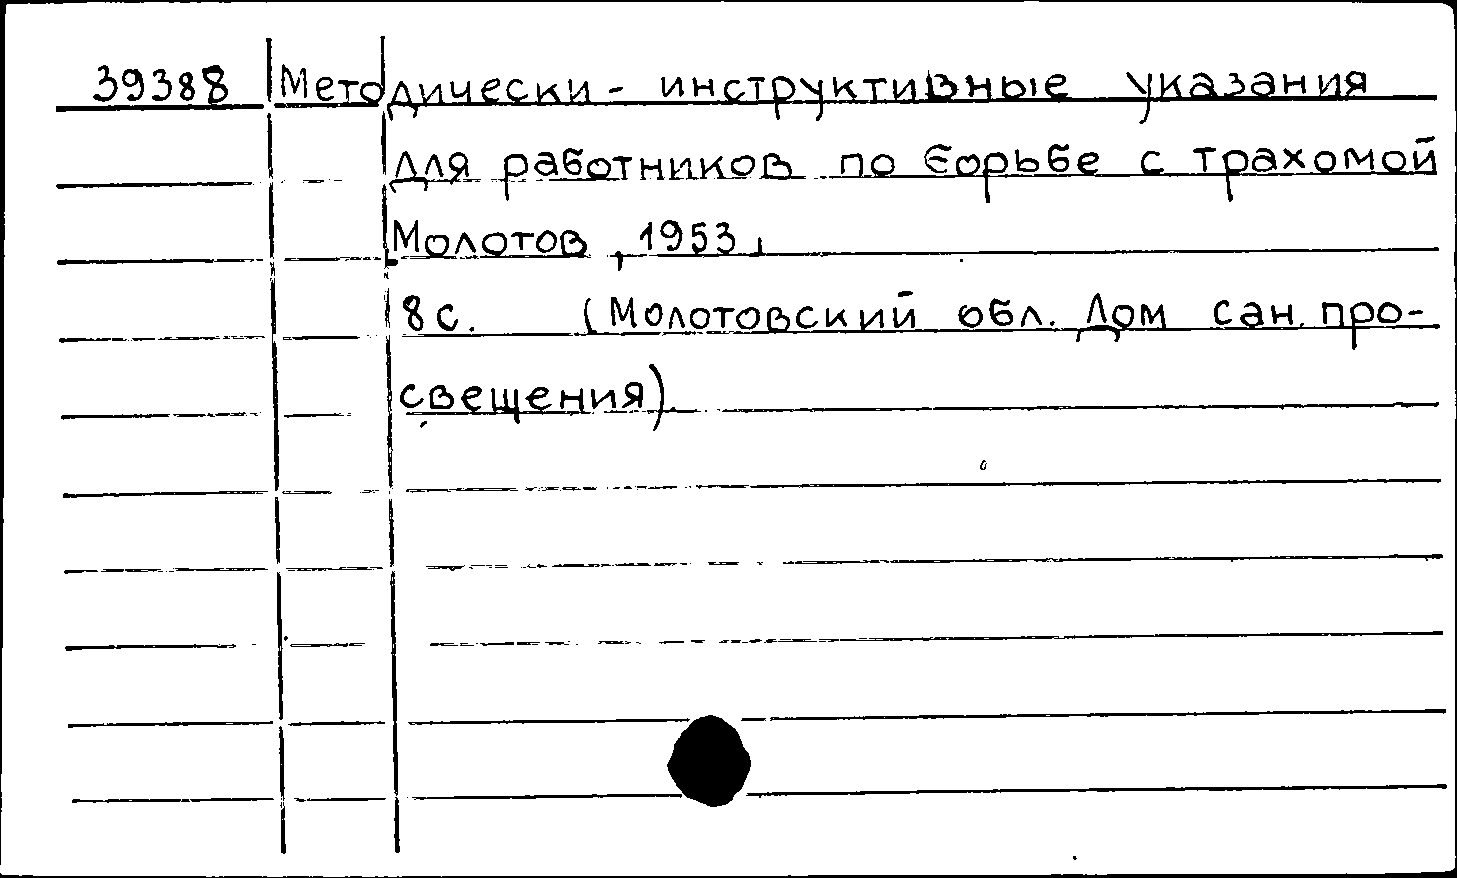 39388 Методически - инструктивные указания
для работников по борьбе с трахомой
Молотов, 1953,
8 с. (Молотовский обл. Дом сан. про-
свещения).